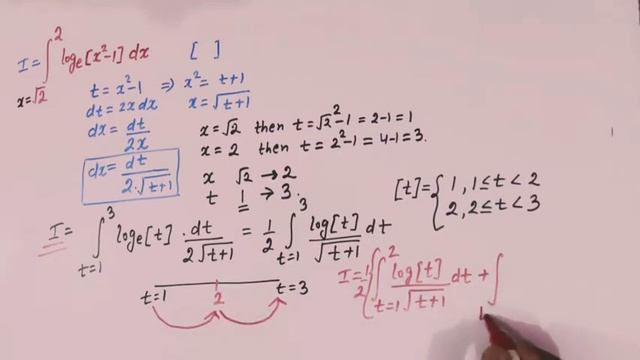 I = ∫_{x=√2}^{2} log_e [x²-1] dx [ ]
t = x²-1 ⇒ x² = t+1
dt = 2x dx x = √(t+1)
dx = dt/2x
dx = dt/(2·√(t+1))
x = √2 then t = √2² -1 = 2-1 = 1
x = 2 then t = 2²-1 = 4-1 = 3.
x √2 → 2
t 1 → 3.
[t] = { 1, 1≤t<2
2, 2≤t<3
I = ∫_{t=1}^{3} log_e [t] · dt/(2√(t+1)) = 1/2 ∫_{t=1}^{3} log[t]/√(t+1) dt
t=1 2 t=3
I = 1/2 { ∫_{t=1}^{2} log[t]/√(t+1) dt + ∫